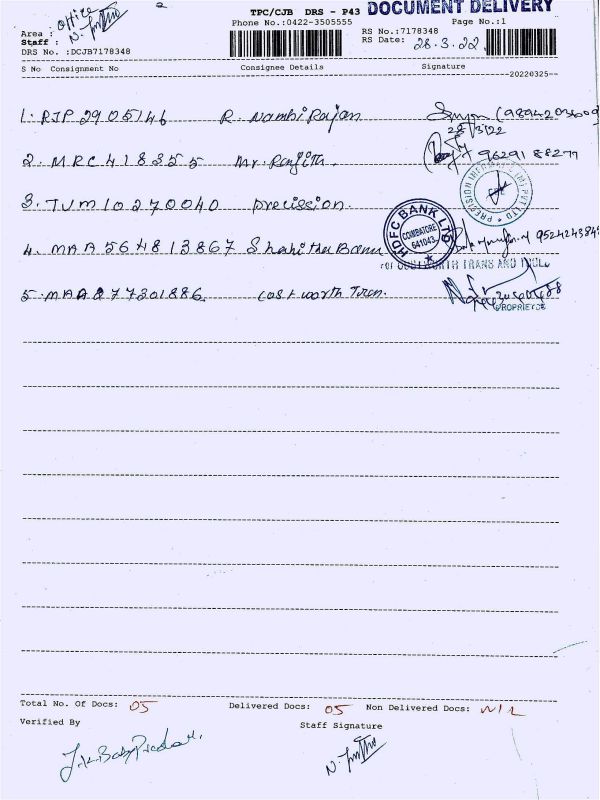 TPC/CJB DRS - P43 DOCUMENT DELIVERY
Phone No.:0422-3505555 Page No.:1
office
Area :
Staff :
DRS No. :DCJB7178348
RS No.:7178348
RS Date: 28.3.22
S No Consignment No Consignee Details Signature
--20220325--
1. RJP 2905146 R. Nambi Rajan
28/3/22
2. MRC 418355 Mr. Ranjith. 9629188279
3. TUM 10270040 precission.
PRECISION
PVT LTD
HDFC BANK LTD
COIMBATORE
641043
4. MAA 564813867 Shahitha Banu
TRANS AND
5. MAA 877301886. Cost worth Tran.
PROPRIETOR
Total No. Of Docs: 05 Delivered Docs: 05 Non Delivered Docs: NIL
Verified By Staff Signature